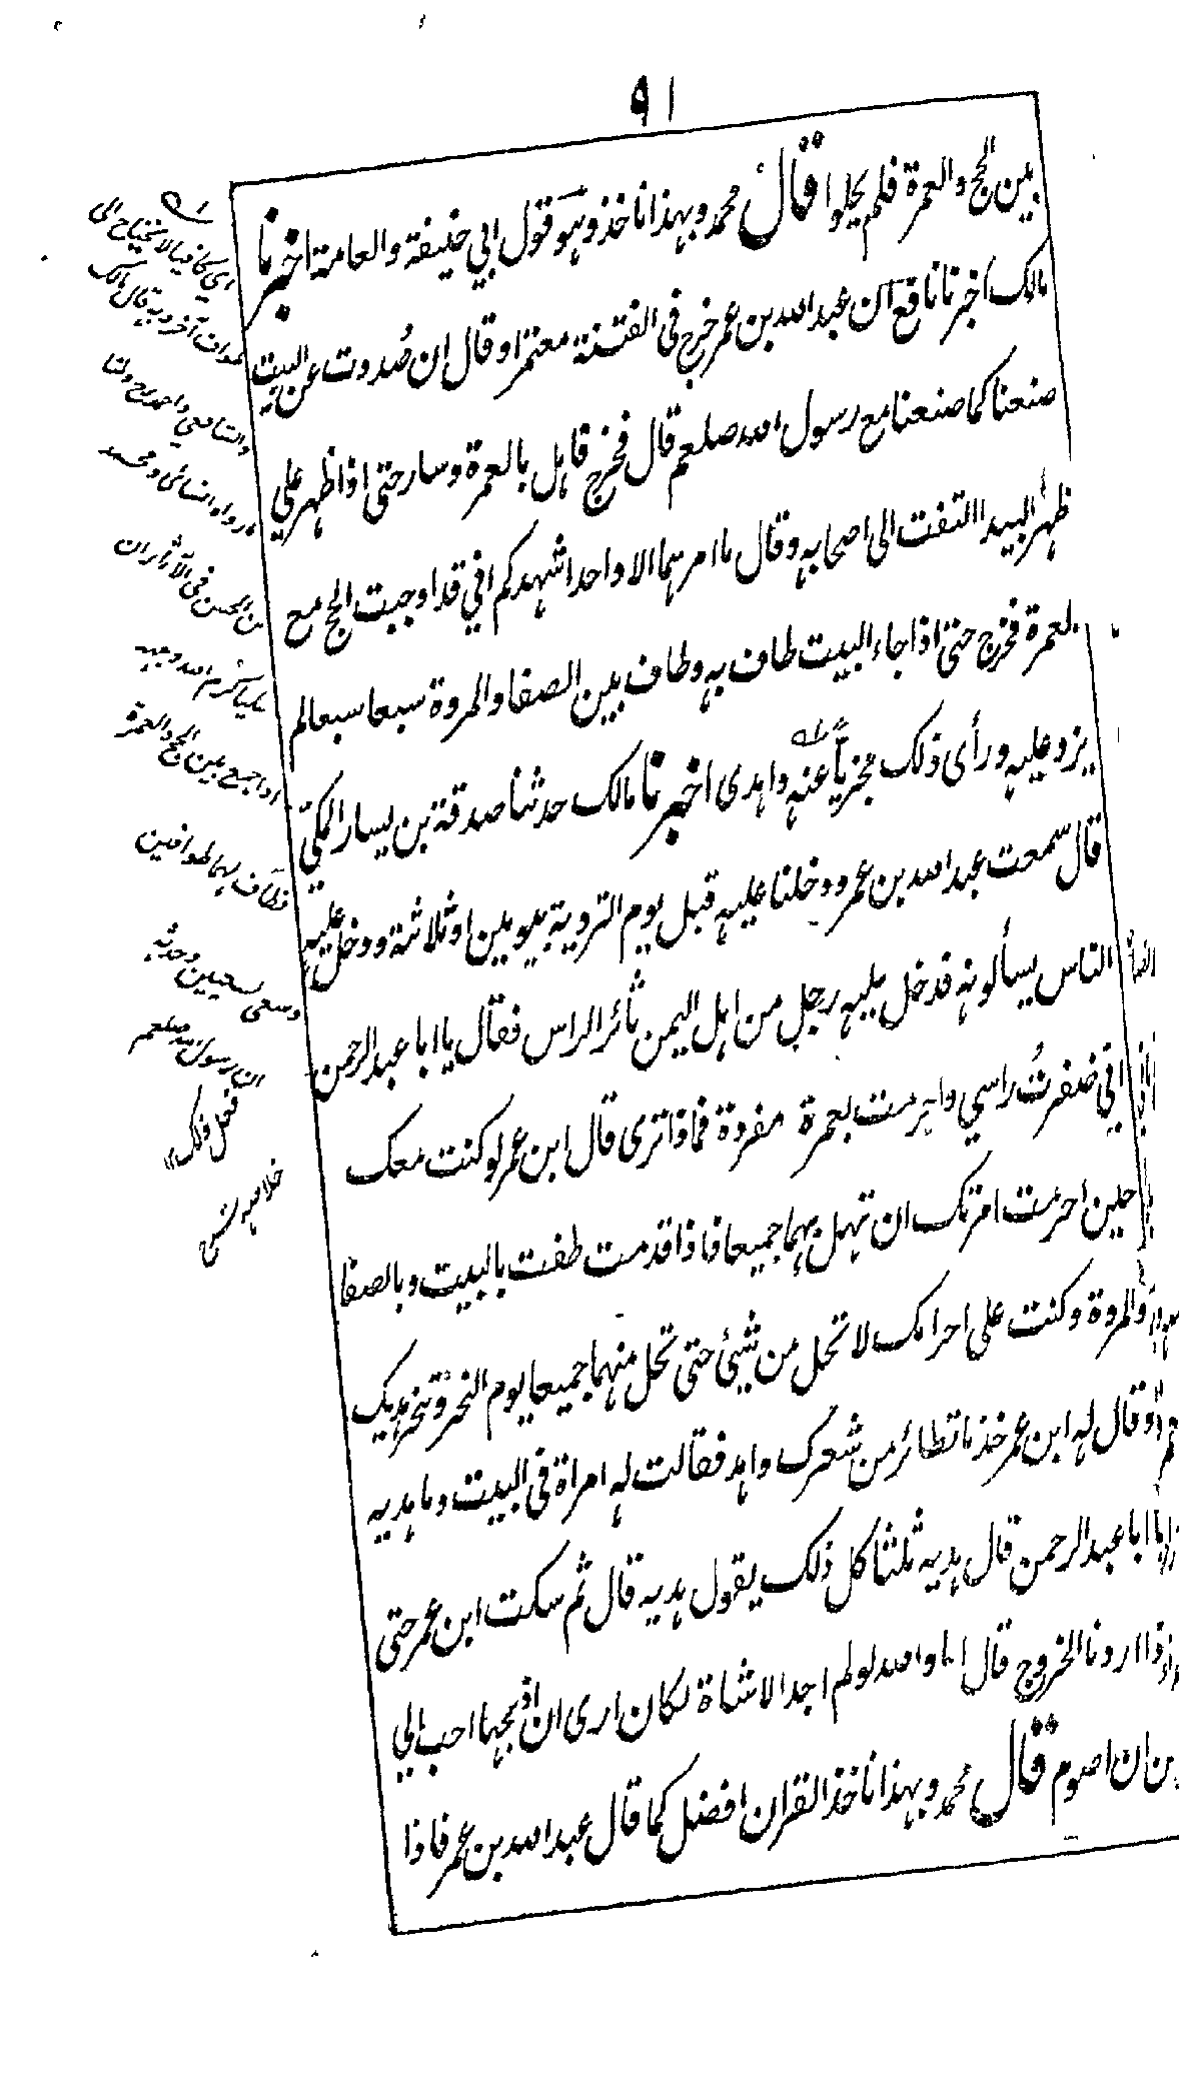 ٩١
بين الحج والعمرة فلم يحلوا قال محمد وبهذا ناخذ وهو قول ابي حنيفة والعامة اخبرنا
مالك اخبرنا نافع ان عبد الله بن عمر خرج في الفتنة معتمرا وقال ان صُددت عن البيت
صنعنا كما صنعنا مع رسول الله صلعم قال فخرج فاهل بالعمرة وسار حتى اذا ظهر علي
ظهر البيدا التفت الى اصحابه وقال ما امرهما الا واحدا شهدكم اني قد اوجبت الحج مع
لعمرة فخرج حتى اذا جاء البيت طاف به وطاف بين الصفا والمروة سبعا سبعا لم
يزد عليه ورأى ذلك مجزيا عنه واهدى اخبرنا مالك حدثنا صدقة بن يسار المكي
قال سمعت عبد الله بن عمر ودخلنا عليه قبل يوم التروية بيومين او ثلاثة ودخل عليه
الناس يسألونه فدخل عليه رجل من اهل اليمن ثائر الراس فقال يا ابا عبد الرحمن
اني ضفرت راسي واحرمت بعمرة مفردة فماذا ترى قال ابن عمر لو كنت معك
حين احرمت امرتك ان تهل بهما جميعا فاذا قدمت طفت بالبيت وبالصفا
والمروة وكنت على احرامك لا تحل من شيئ حتى تحل منهما جميعا يوم النحر وتنحر هديك
وقال له ابن عمر خذ ما تطائر من شعرك واهد فقالت له امراة في البيت وما هديه
يا ابا عبد الرحمن قال هديه ثلثا كل ذلك يقول هديه قال ثم سكت ابن عمر حتى
اذا اردنا الخروج قال اما والله لو لم اجد الا شاة لكان ارى ان اذبحها احب الي
من ان اصوم قال محمد وبهذا ناخذ القران افضل كما قال عبد الله بن عمر فاذا
اي كافيا لا يحتاج الى
طواف آخر وبه قال مالك
والشافعي واحمد ولنا
ما رواه النسائي ومحمد
بن الحسن في الآثار ان
عليا كرم الله وجهه
اذا جمع بين الحج والعمرة
فطاف لهما طوافين
وسعى سعيين وحدثه
ان رسول الله صلعم
فعل ذلك